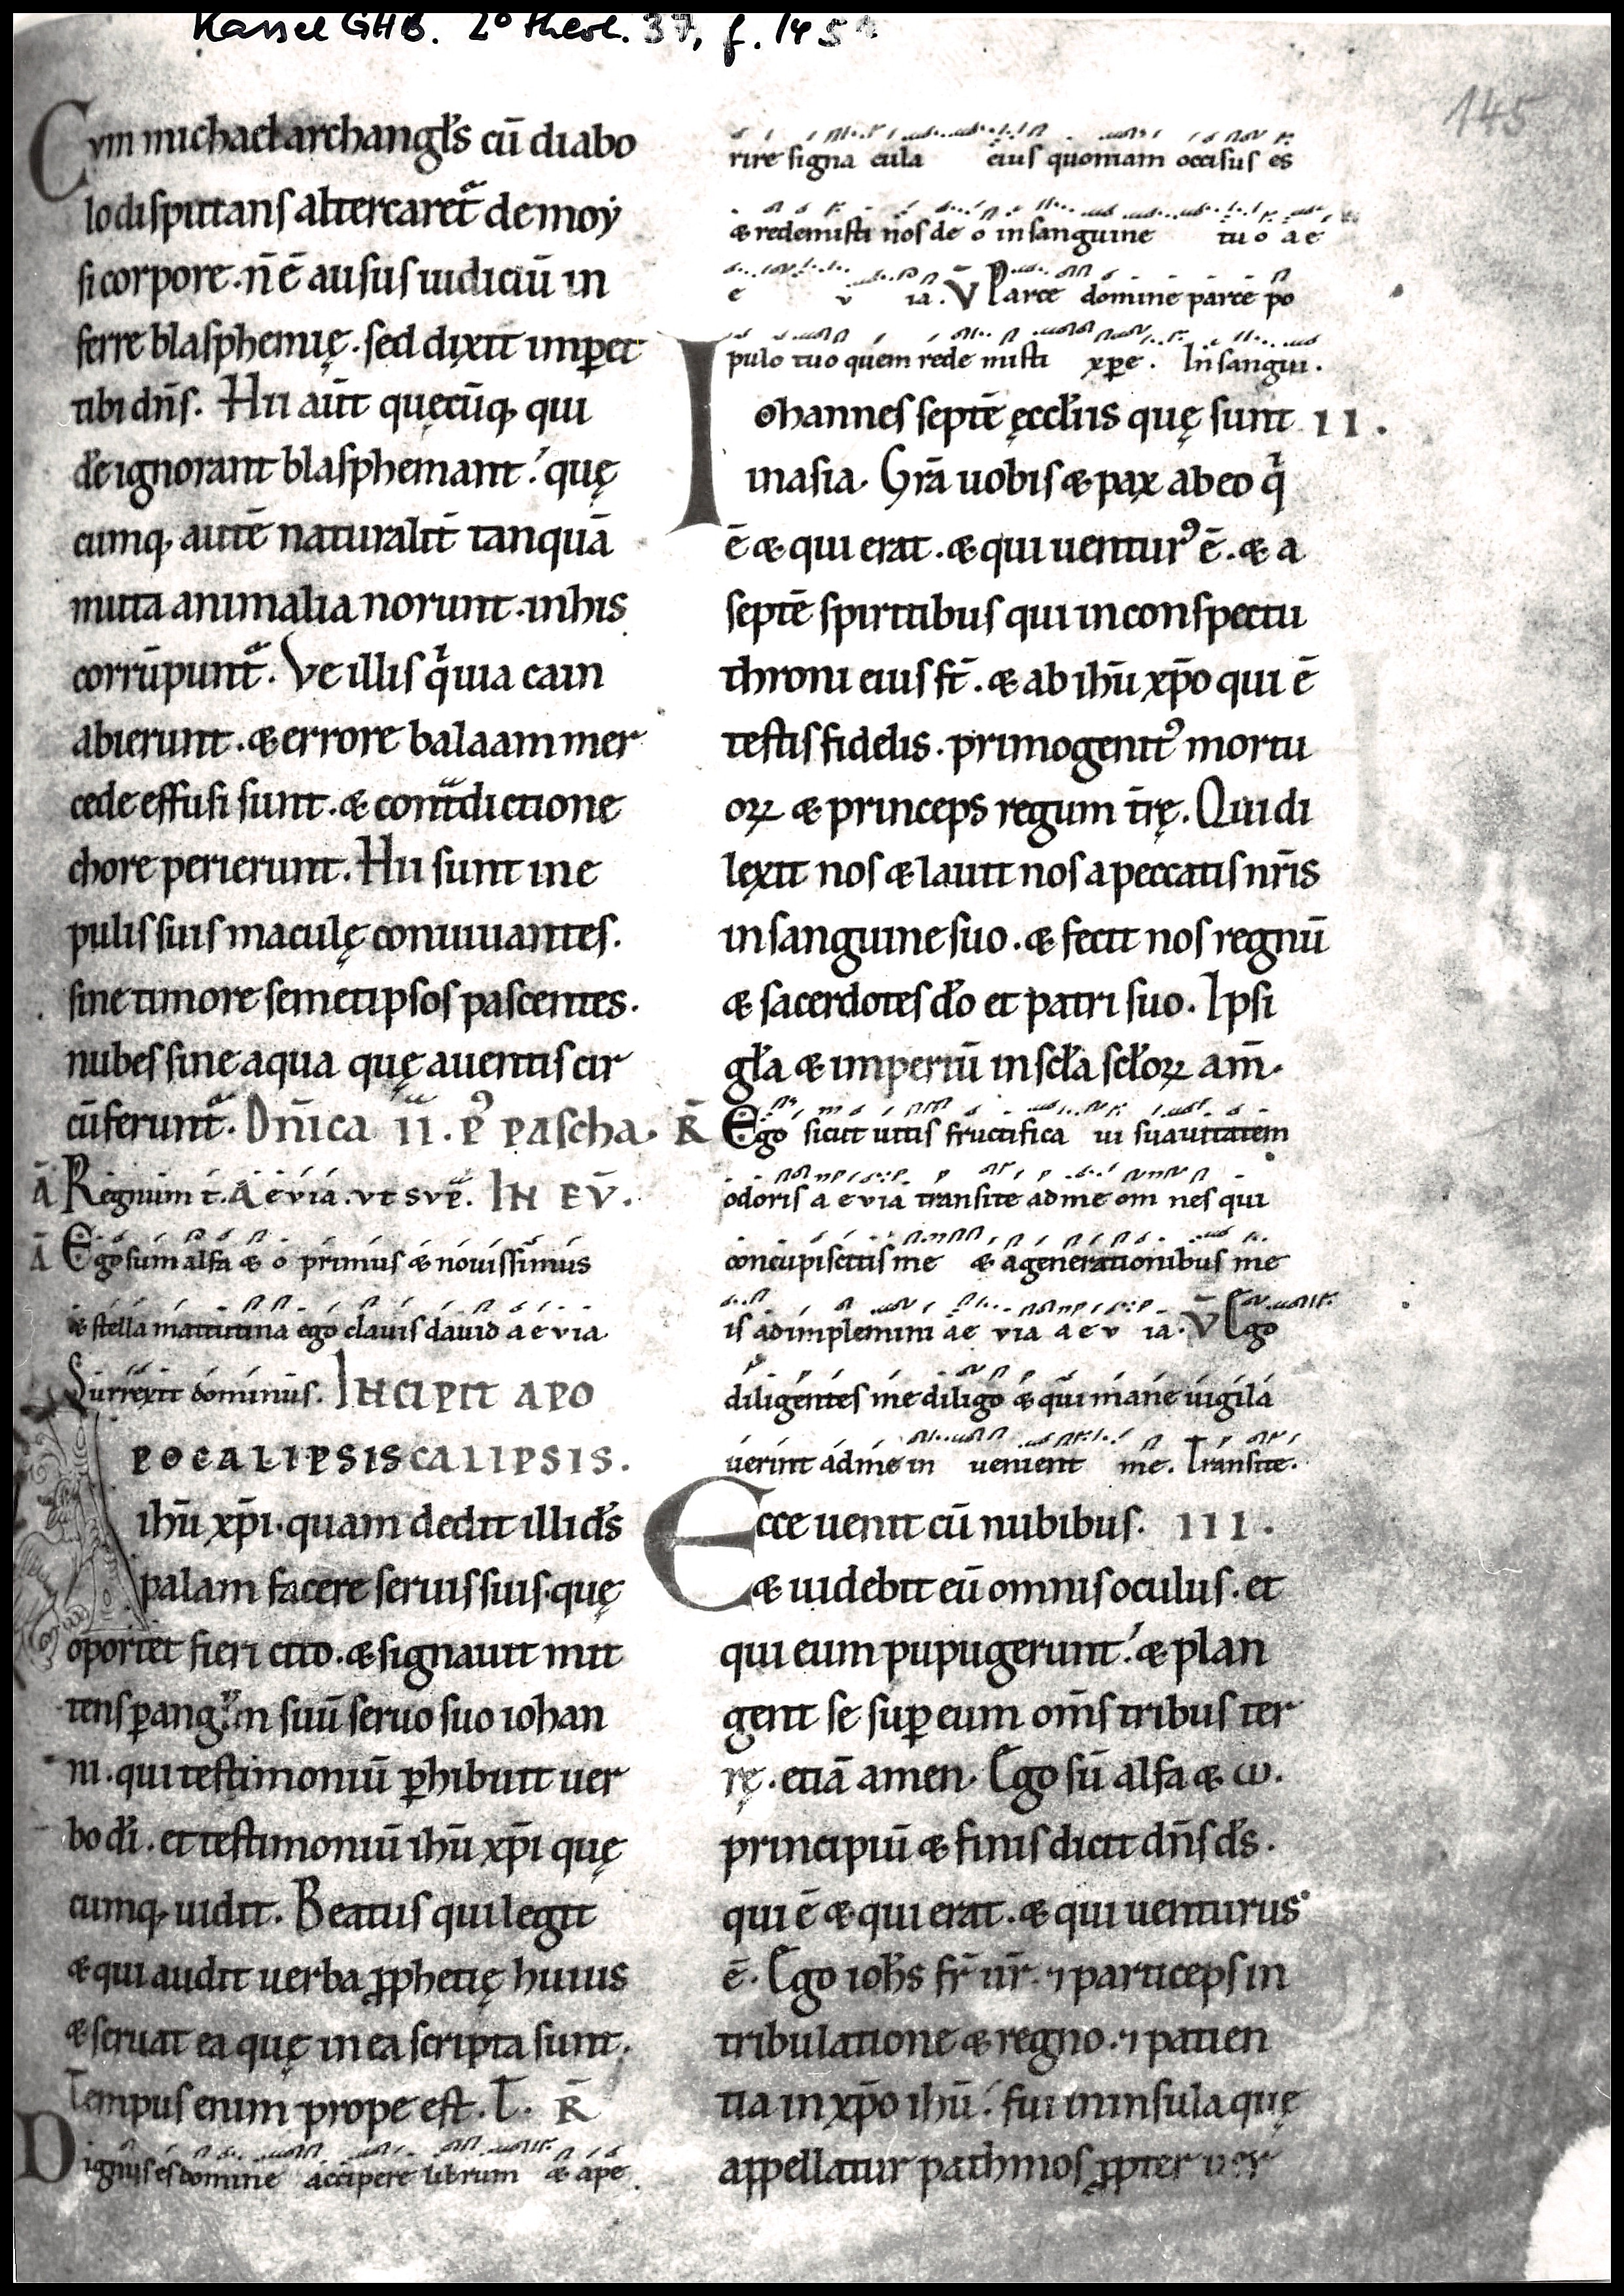 Kassel GHB. 2° theol. 37, f. 145r
145
Cvm michael archangl̄s cū diabo
lo disputans altercaret̄ de moẏ
si corpore. n̄ ē ausus iudiciū in
ferre blasphemię. sed dixit imꝑet
tibi dn̄s. Hii aūt quęcūq; qui
dē ignorant blasphemant: quę
cumq; autē naturalit̄ tanquā
muta animalia norunt. in his
corrūpunt̄. Ve illis qͥ uia cain
abierunt. & errore balaam mer
cede effusi sunt. & cont̄dictione
chore perierunt. Hii sunt in e
pulis suis maculę conuiuantes.
sine timore semetipsos pascentes.
nubes sine aqua quę a uentis cir
cūferunt̄. Dn̄ica ii. p̓ pascha.
Ā Regnum t. A evia. vt svp̄. In ev̄.
Ā Ego sum alfa & o primus & nouissimus
& stella matutina ego clauis dauid a e v i a
Surrexit dominus. Incipit apo
pocalipsis calipsis.
ihū xp̄i. quam dedit illi ds̄
palam facere seruis suis. quę
oportet fieri cito. & signauit mit
tens ꝑ angl̄m suū seruo suo iohan
ni. qui testimoniū ꝑhibuit uer
bo dī. et testimoniū ihū xp̄i quę
cumq; uidit. Beatus qui legit
& qui audit uerba ꝓphetię huius
& seruat ea quę in ea scripta sunt.
Tempus enim prope est. T. R̄
Dignus es domine accipere librum & ape
rire signa cula eius quoniam occisus es
& redemisti nos de o in sanguine tu o a e
e v ia. V̄ Parce domine parce po
pulo tuo quem rede misti xpe. In sangui.
Iohannes septē ęccl̄iis quę sunt II.
in asia. Grā uobis & pax ab eo qͥ
ē & qui erat. & qui uentur᾽ ē. & a
septē spiritibus qui in conspectu
throni eius st̄. & ab ihū xp̄o qui ē
testis fidelis. primogenit᾽ mortu
oꝝ & princeps regum t̄rę. Qui di
lexit nos & lauit nos a peccatis nr̄is
in sanguine suo. & fecit nos regnū
& sacerdotes dō et patri suo. Ipsi
gl̄a & imperiū in scl̄a scl̄oꝝ am̄.
R̄ Ego sicut uitis fructifica ui suauitatem
odoris a e v i a transite ad me om nes qui
concupiscitis me & a generationibus me
is adimplemini a e v i a a e v ia. V̄ Ego
diligentes me diligo & qui mane uigila
uerint ad me in uenient me. Transite.
Ecce uenit cū nubibus. III.
& uidebit eū omnis oculus. et
qui eum pupugerunt: & plan
gent se suꝑ eum om̄s tribus ter
rę. etiā amen. Ego sū alfa & ω.
principiū & finis dicit dn̄s ds̄.
qui ē & qui erat. & qui uenturus
ē. Ego ioh̄s fr̄ ur̄. ⁊ particeps in
tribulatione & regno. ⁊ patien
tia in xp̄o ihū: fui in insula quę
appellatur pathmos ꝓpter uer